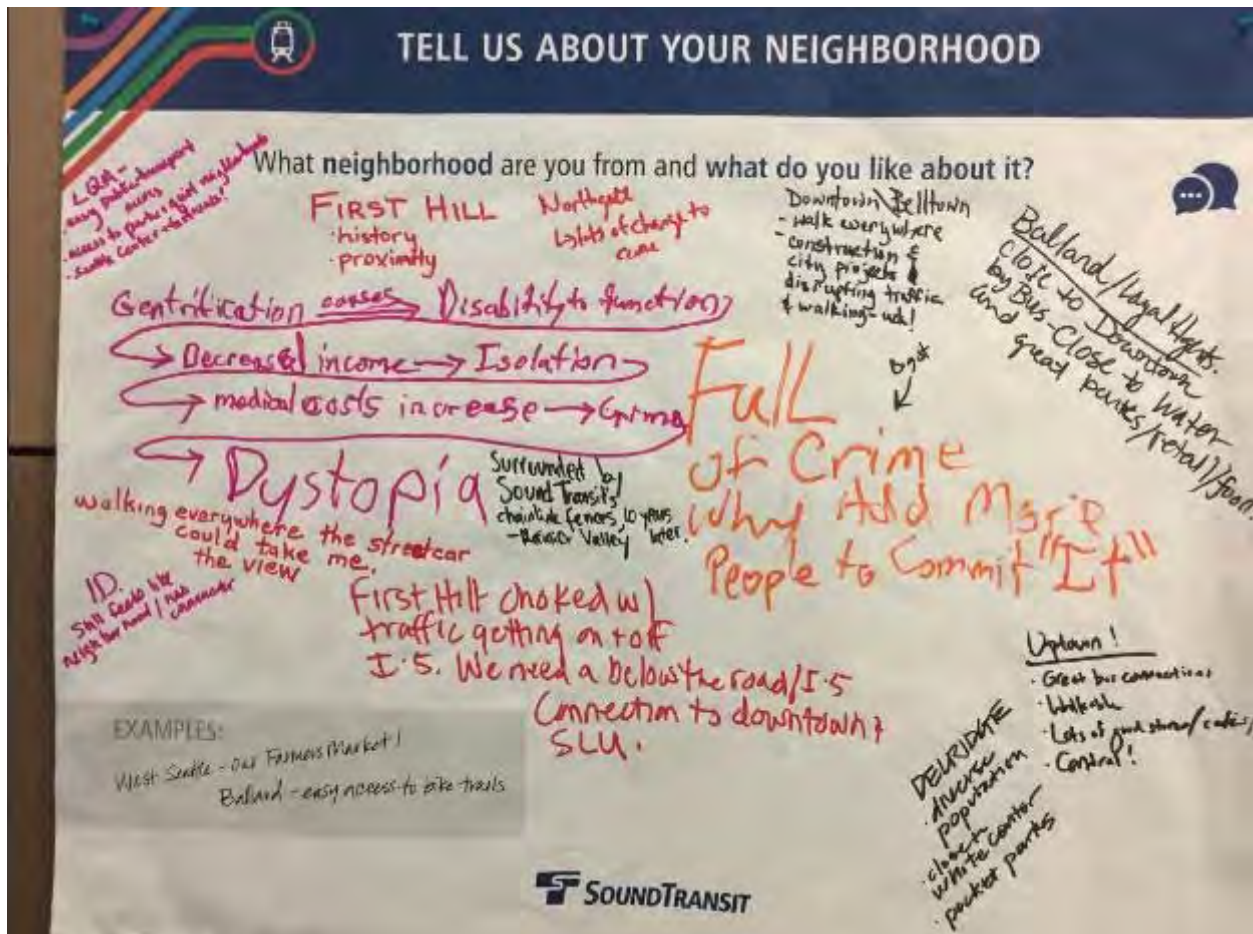 TELL US ABOUT YOUR NEIGHBORHOOD
What neighborhood are you from and what do you like about it?
LQA -
easy public transport
access
access to parks + quiet neighborhoods
Seattle Center + festivals!
FIRST HILL
· history
· proximity
Northgate
lots of change to
come
Downtown\Belltown
- walk everywhere
- construction &
city projects
disrupting traffic
& walking - ugh!
Ballard/Loyal Hghts.
close to Downtown
by Bus - Close to water
and great parks/retail/food
Gentrification causes Disability to function
Decreased income → Isolation
→ medical costs increase → Crime
→ Dystopia
Full
of Crime
Why Add More
People to Commit "It"
Surrounded by
Sound Transit's
chainlink fences, 10 years
- Rainier Valley later.
walking everywhere the streetcar
could take me.
the view
ID.
Still feels like
neighborhood / has
character
First Hill choked w/
traffic getting on + off
I-5. We need a below the road/I-5
Connection to downtown &
SLU.
Uptown!
· Great bus connections
· Walkable
· Lots of good stores/cafes/
· Central!
DELRIDGE
· diverse
population
· close to
White Center
· pocket parks
EXAMPLES:
West Seattle - Our Farmers Market!
Ballard - easy access to bike trails
SOUNDTRANSIT